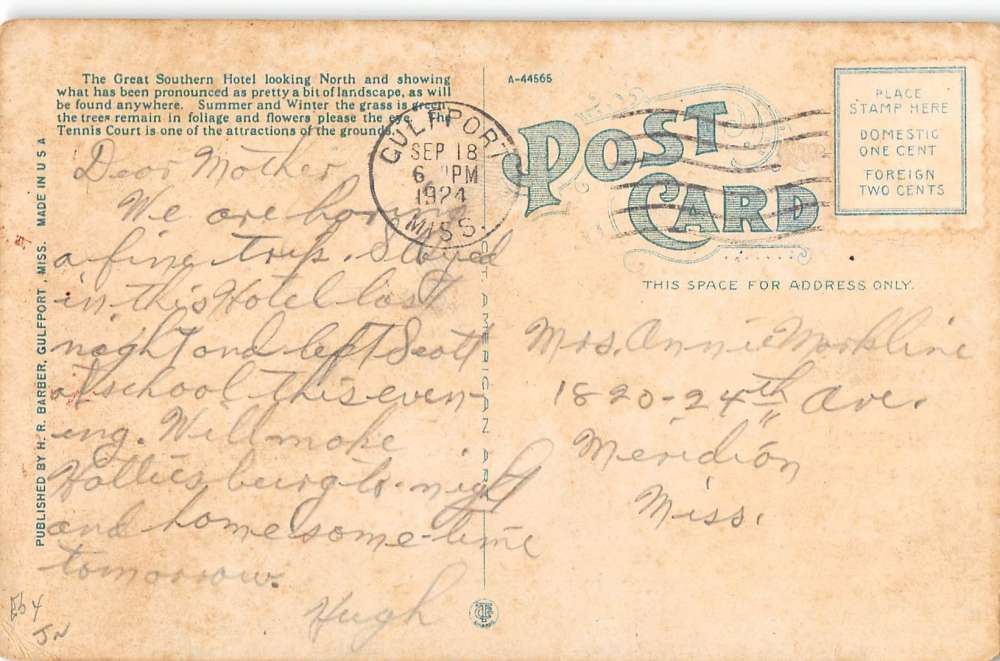 The Great Southern Hotel looking North and showing
what has been pronounced as pretty a bit of landscape, as will
be found anywhere. Summer and Winter the grass is green,
the trees remain in foliage and flowers please the eye. The
Tennis Court is one of the attractions of the grounds.
Dear Mother,
We are having
a fine trip. Stayed
in this Hotel last
night and left Scott
at school this even-
ing. Will make
Hattiesburg to-night
and home some-time
tomorrow.
Hugh
PUBLISHED BY H. R. BARBER, GULFPORT, MISS. MADE IN U S A
A-44565
GULFPORT
SEP 18
6 PM
1924
MISS.
POST
CARD
PLACE
STAMP HERE
DOMESTIC
ONE CENT
FOREIGN
TWO CENTS
THIS SPACE FOR ADDRESS ONLY.
Mrs. Annie Markline
1820-24th Ave.
Meridian
Miss.
AMERICAN ART